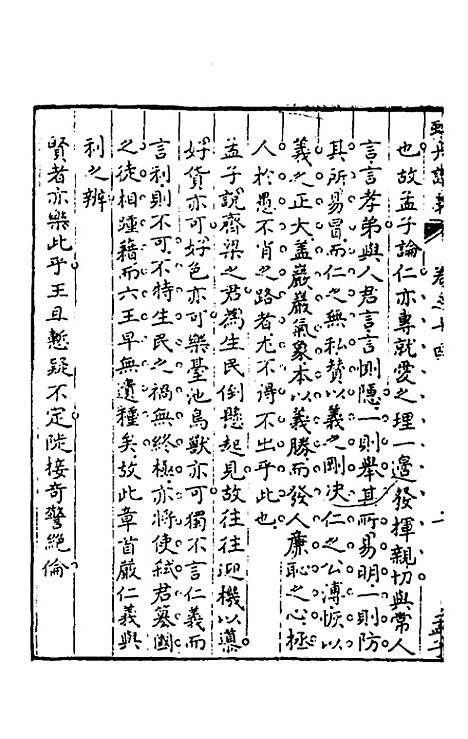 也故孟子論仁亦專就愛之理一邊發揮親切與常人
言言孝弟與人君言言惻隱一則舉其所易明一則防
其所易冒而仁之無私贊以義之剛決仁之公溥恢以
義之正大蓋巖巖氣象本以義勝而發人廉恥之心極
人於愚不肖之路者尤不得不出乎此也
孟子說齊梁之君為生民倒懸起見故往往迎機以導
好貨亦可好色亦可樂臺池鳥獸亦可獨不言仁義而
言利則不可不特生民之禍無終極亦將使弒君篡國
之徒相踵藉而六王早無遺種矣故此章首嚴仁義與
利之辨
賢者亦樂此乎王且慙疑不定陡接奇警絕倫